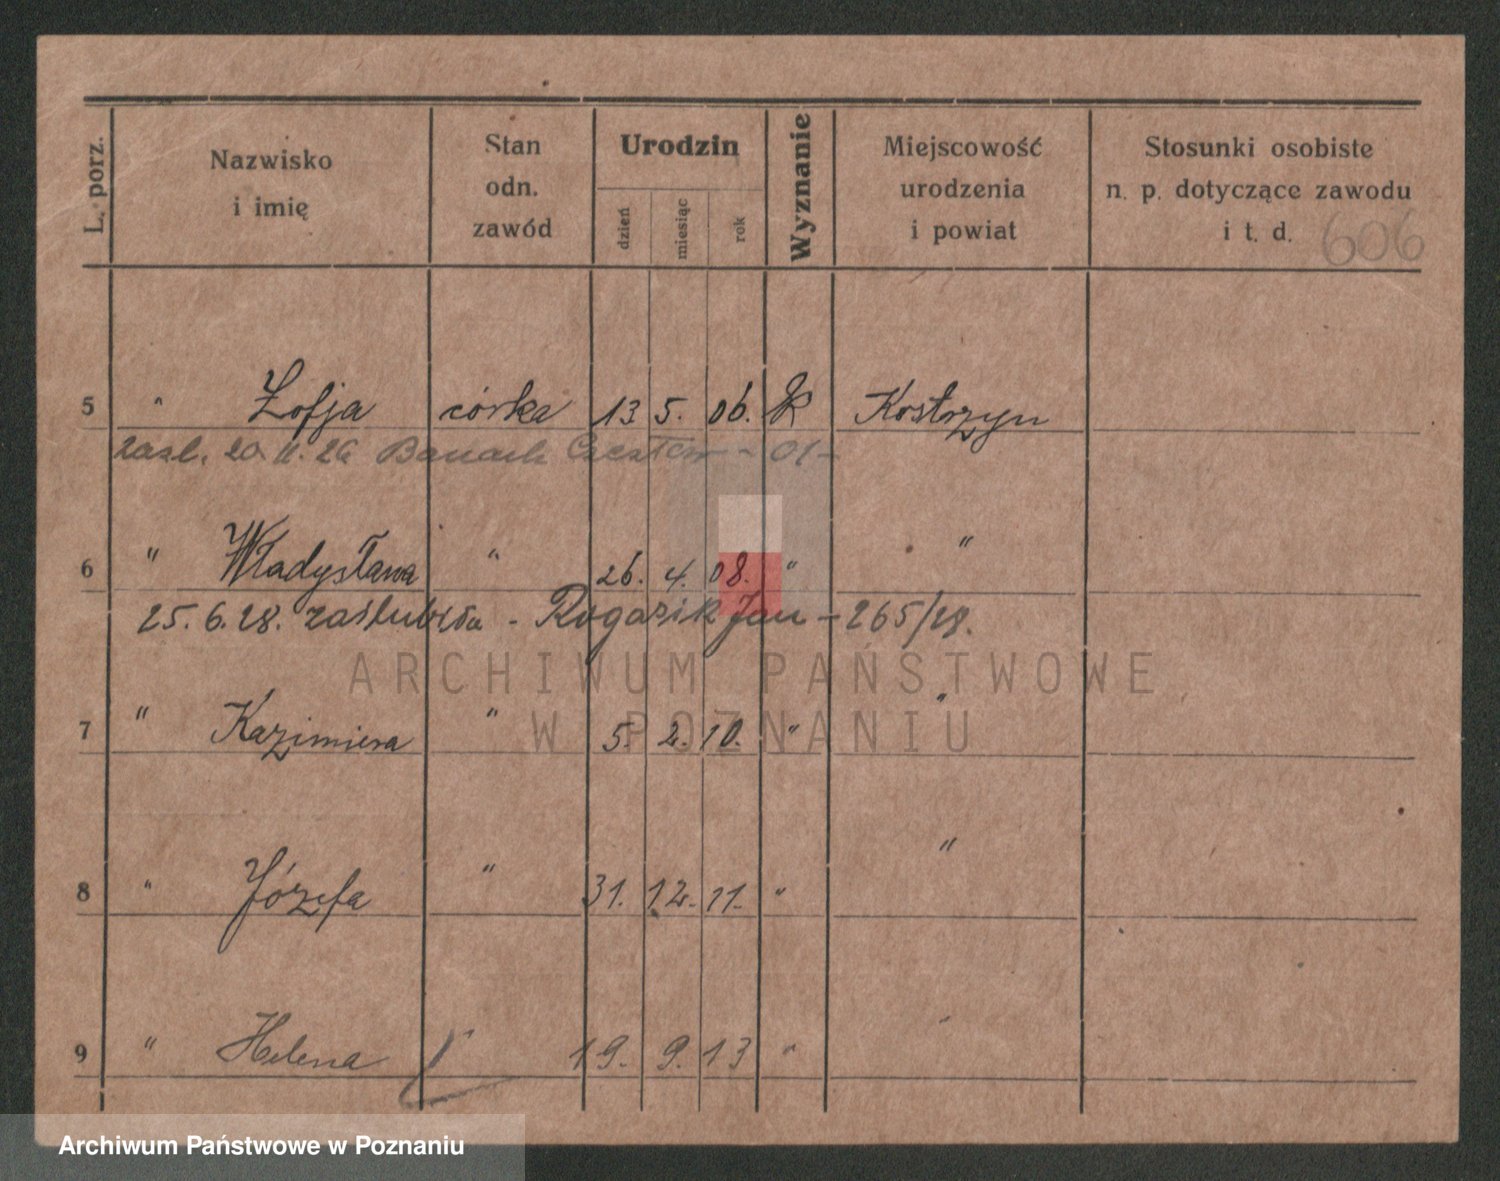 L. porz. Nazwisko i imię Stan odn. zawód Urodzin dzień miesiąc rok Wyznanie Miejscowość urodzenia i powiat Stosunki osobiste n. p. dotyczące zawodu i t. d.
606
5 " Zofja córka 13 5. 06. K Kostrzyn
zasl. 20. 11. 26 Banach Czesław - 01 -
6 " Władysława " 26. 4. 08. " "
25. 6. 28. zaślubiła - Rogazik Jan - 265/28.
ARCHIWUM PAŃSTWOWE
W POZNANIU
7 " Kazimiera " 5. 2. 10. " "
8 " Józefa " 31. 12. 11. " "
9 " Helena 19. 9. 13 "
Archiwum Państwowe w Poznaniu